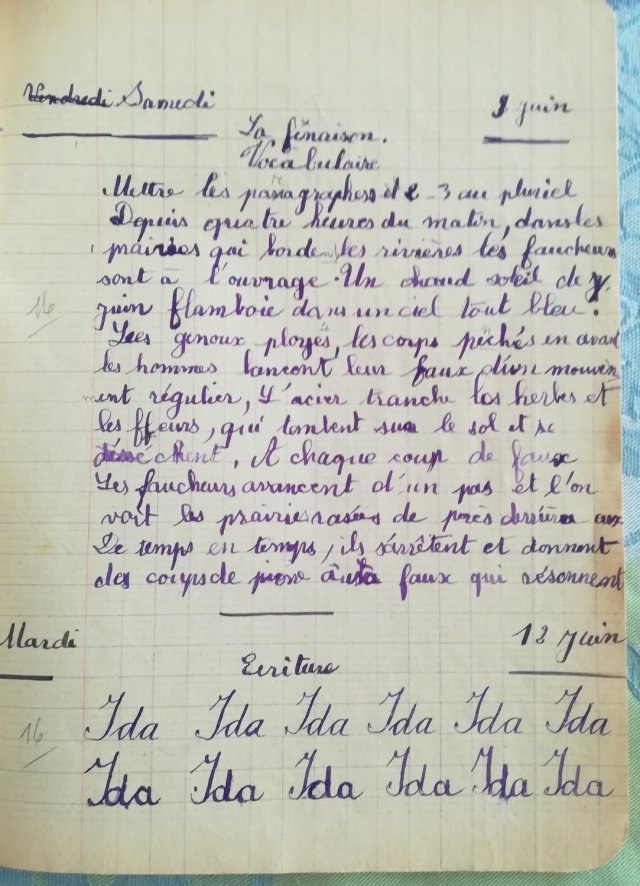 Vendredi Samedi 9 juin
La fenaison.
Vocabulaire
Mettre les paragraphes et 2 - 3 au pluriel
Depuis quatre heures du matin, dans les
prairies qui bordent les rivières les faucheurs
sont à l'ouvrage. Un chaud soleil de
juin flamboie dans un ciel tout bleu.
16
Les genoux ployés, les corps pèchés en avant
les hommes lancent leur faux d'un mouvem
ent régulier, L'acier tranche les herbes et
les ffleurs, qui tombent sur le sol et se
déssèchent, A chaque coup de faux
Les faucheurs avancent d'un pas et l'on
voit les prairies rasées de près derrière eux
De temps en temps, ils s'arrêtent et donnent
des coups de pierre faux qui résonnent
Mardi 12 juin
Ecriture
16
Ida Ida Ida Ida Ida Ida
Ida Ida Ida Ida Ida Ida